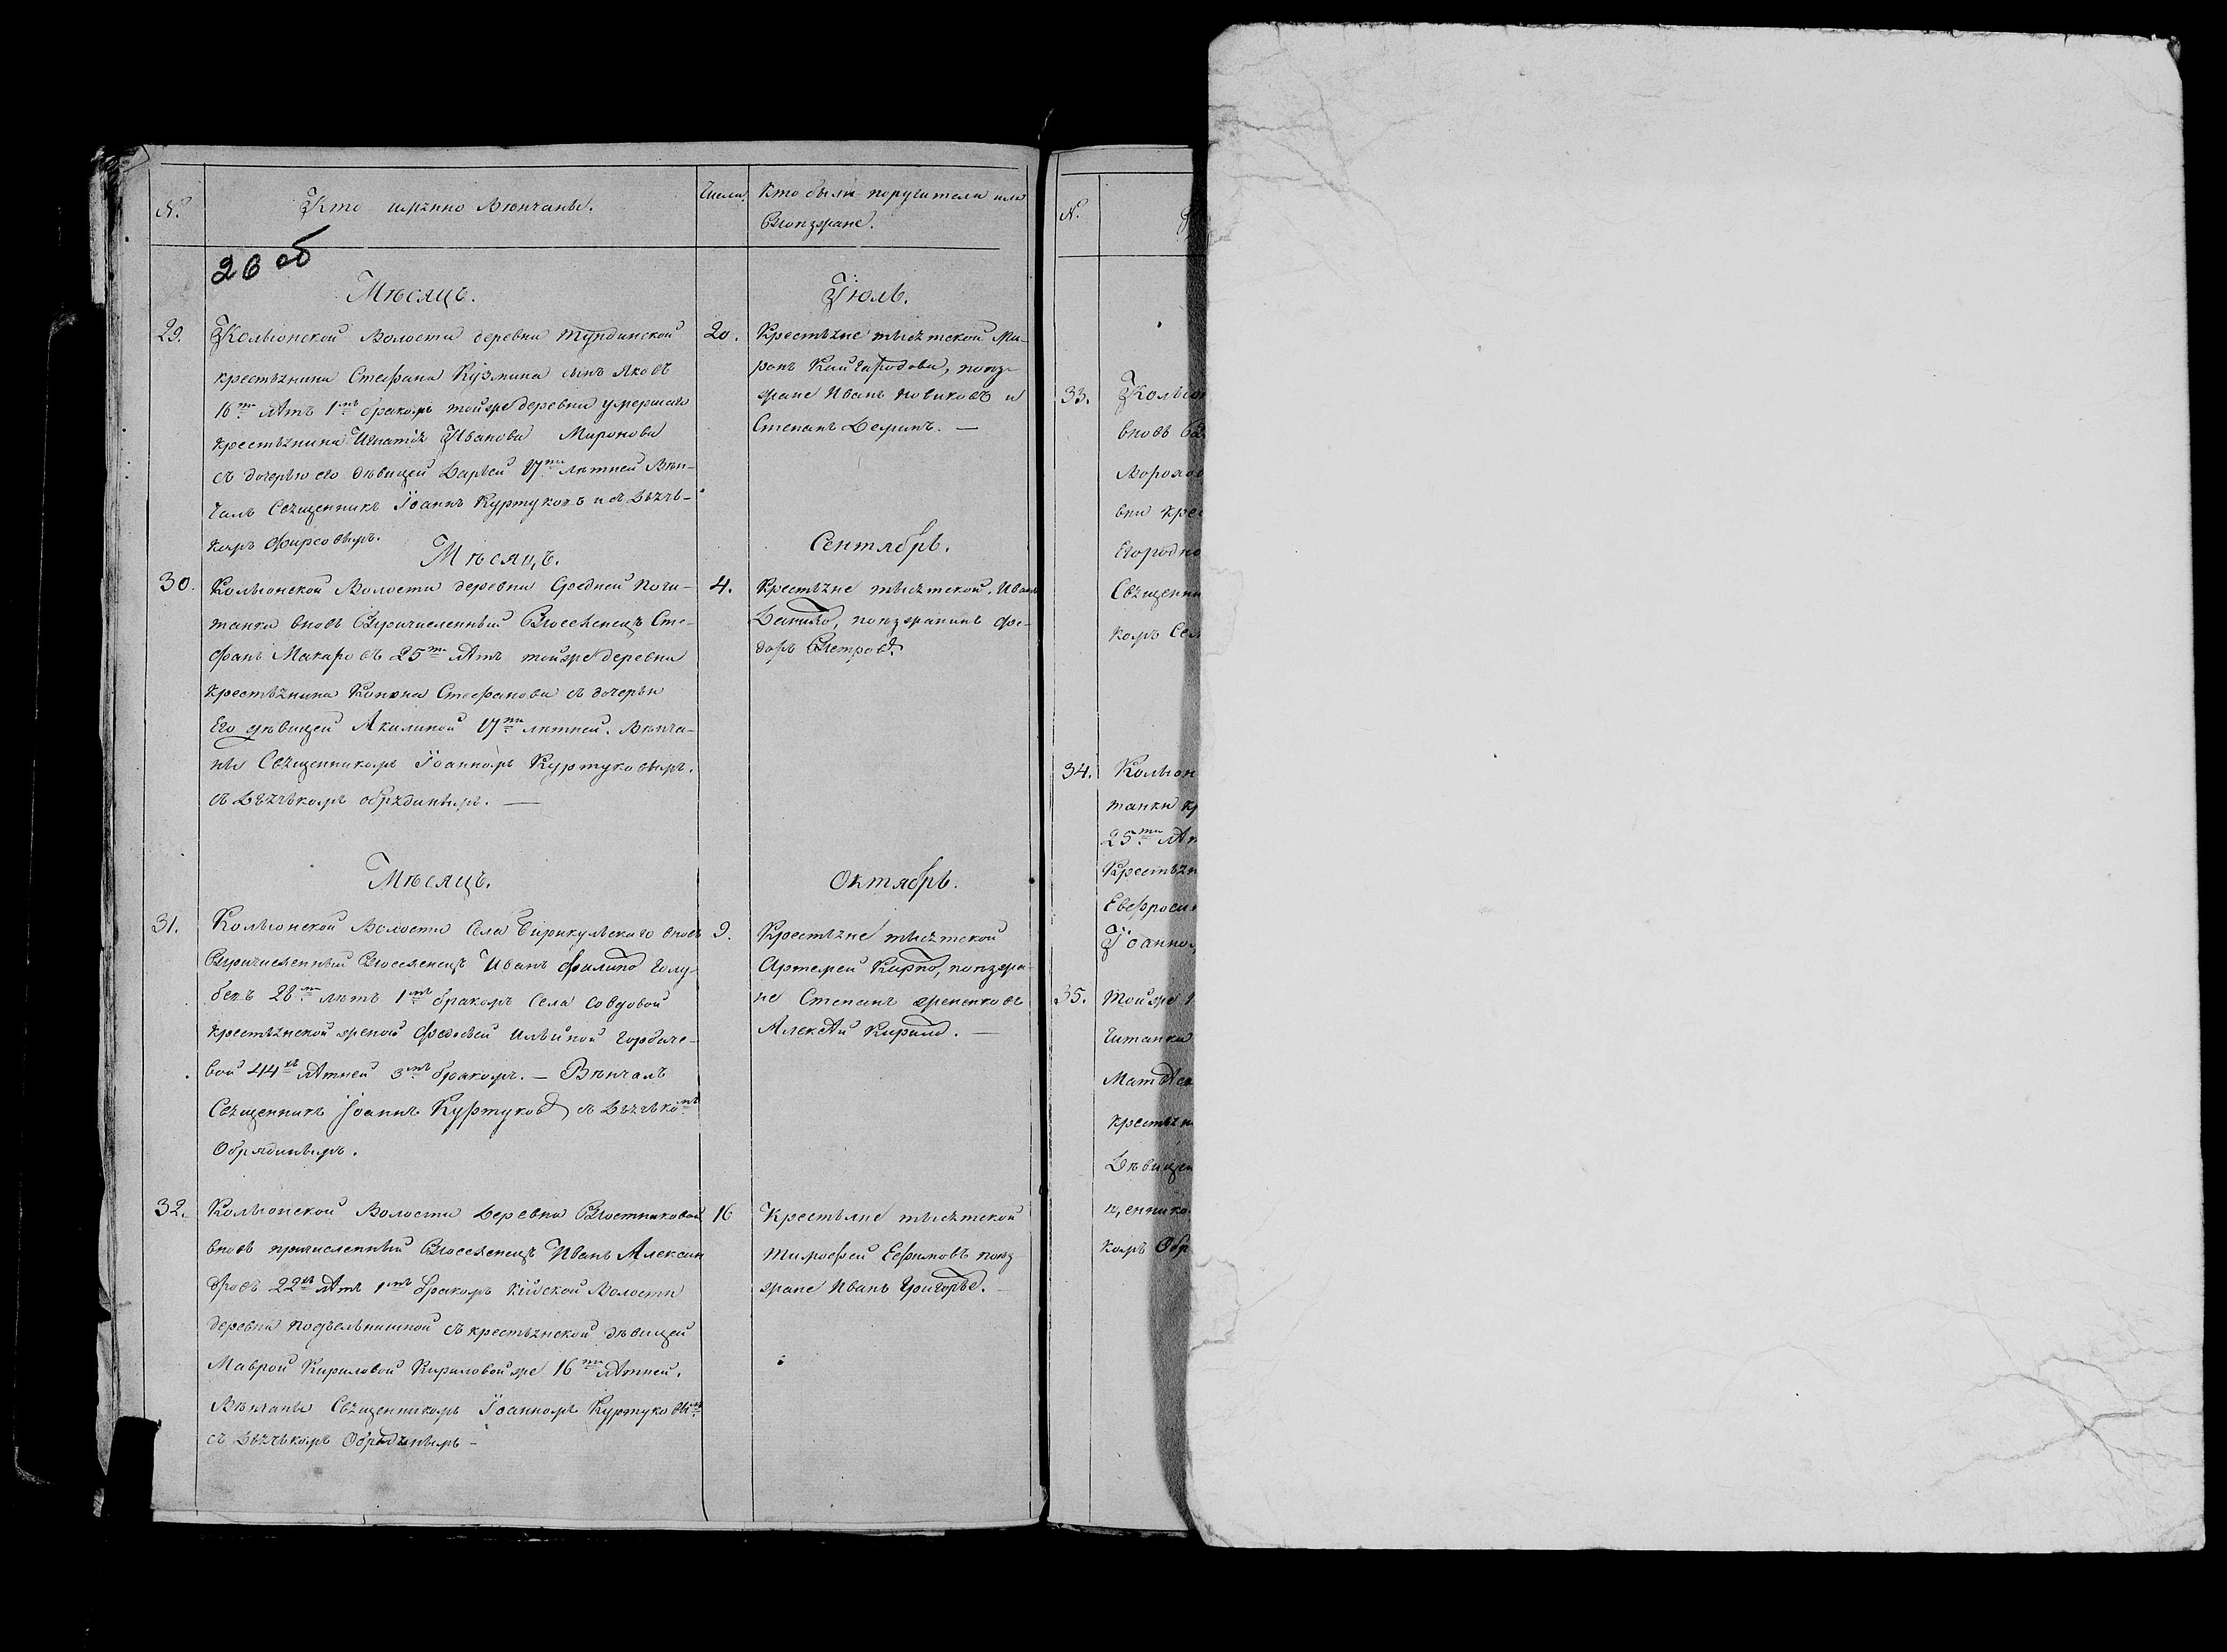 №.
Кто имянно Вѣнчаны.
Числа.
Кто были поручители или
Поизжане.
26 об
Мѣсяцъ.
Іюль.
29.
Колыонской Волости деревни Тундинской
крестьянина Стефана Кузмина сынъ Яковъ
16ти лѣтъ 1мъ бракомъ тойже деревни умершаго
крестьянина Игнатія Иванова Миронова
съ дочерью его дѣвицей Дарьей 17ти лѣтней Вѣн-
чалъ Священникъ Іоаннъ Куртуковъ и съ Дьячь-
комъ Фирсовымъ.
20.
Крестьяне тысятской Ми-
ронъ Кайгародовъ, поиз-
жане Иванъ Новиковъ и
Степанъ
Мѣсяцъ.
Сентябрь.
30.
Колыонской Волости деревни Средней Почи-
танки вновь Причисленный Поселенецъ Сте-
фанъ Макаровъ 25ти лѣтъ тойже деревни
крестьянина Конона Стефанова съ дочерью
Его дѣвицей Акилиной 17ти лѣтней. Вѣнча-
ны Священникомъ Іоанномъ Куртуковымъ.
съ Дьячькомъ обряднымъ. —
4.
Крестьяне тысятской. Иванъ
Данило, поизжанинъ Фе-
доръ Петровъ.
Мѣсяцъ.
Октябрь.
31.
Колыонской Волости Села Бирикульскаго вновь
Причисленный Поселенецъ Иванъ Филипо Голу-
бевъ 28ми лѣтъ 1мъ бракомъ Села
крестьянской женой Федосьей Ильиной Горбаче-
вой 44хъ лѣтней 3мъ бракомъ. — Вѣнчалъ
Священникъ Іоаннъ Куртуковъ съ Дьячькомъ
Обряднымъ.
9.
Крестьяне тысятской
Артемей Карпо, поизжа-
не Степанъ
Алексѣй Кирило. —
32.
Колыонской Волости Деревни Постниковой
вновь причисленный Поселенецъ Иванъ Алексан
дровъ 22хъ лѣтъ 1мъ бракомъ Кійской Волости
деревни Подъельнишной съ крестьянской дѣвицей
Маврой Кириловой Кириловойже 16ти лѣтней.
Вѣнчаны Священникомъ Іоанномъ Куртуковымъ
съ Дьячькомъ Обряднымъ —
16
Крестьяне тысятской
Тимофей Ефимовъ поиз
жане Иванъ Григорье.
№.
33.
Колыон
вновь
вни крес
Священни
34.
Колыон
танки кр
25ти лѣт
Крестьян
Евфросин
Іоанном
35.
Тойже
Читанки
Матвѣев
крестьян
Дѣвицей
щеннико
комъ Обр